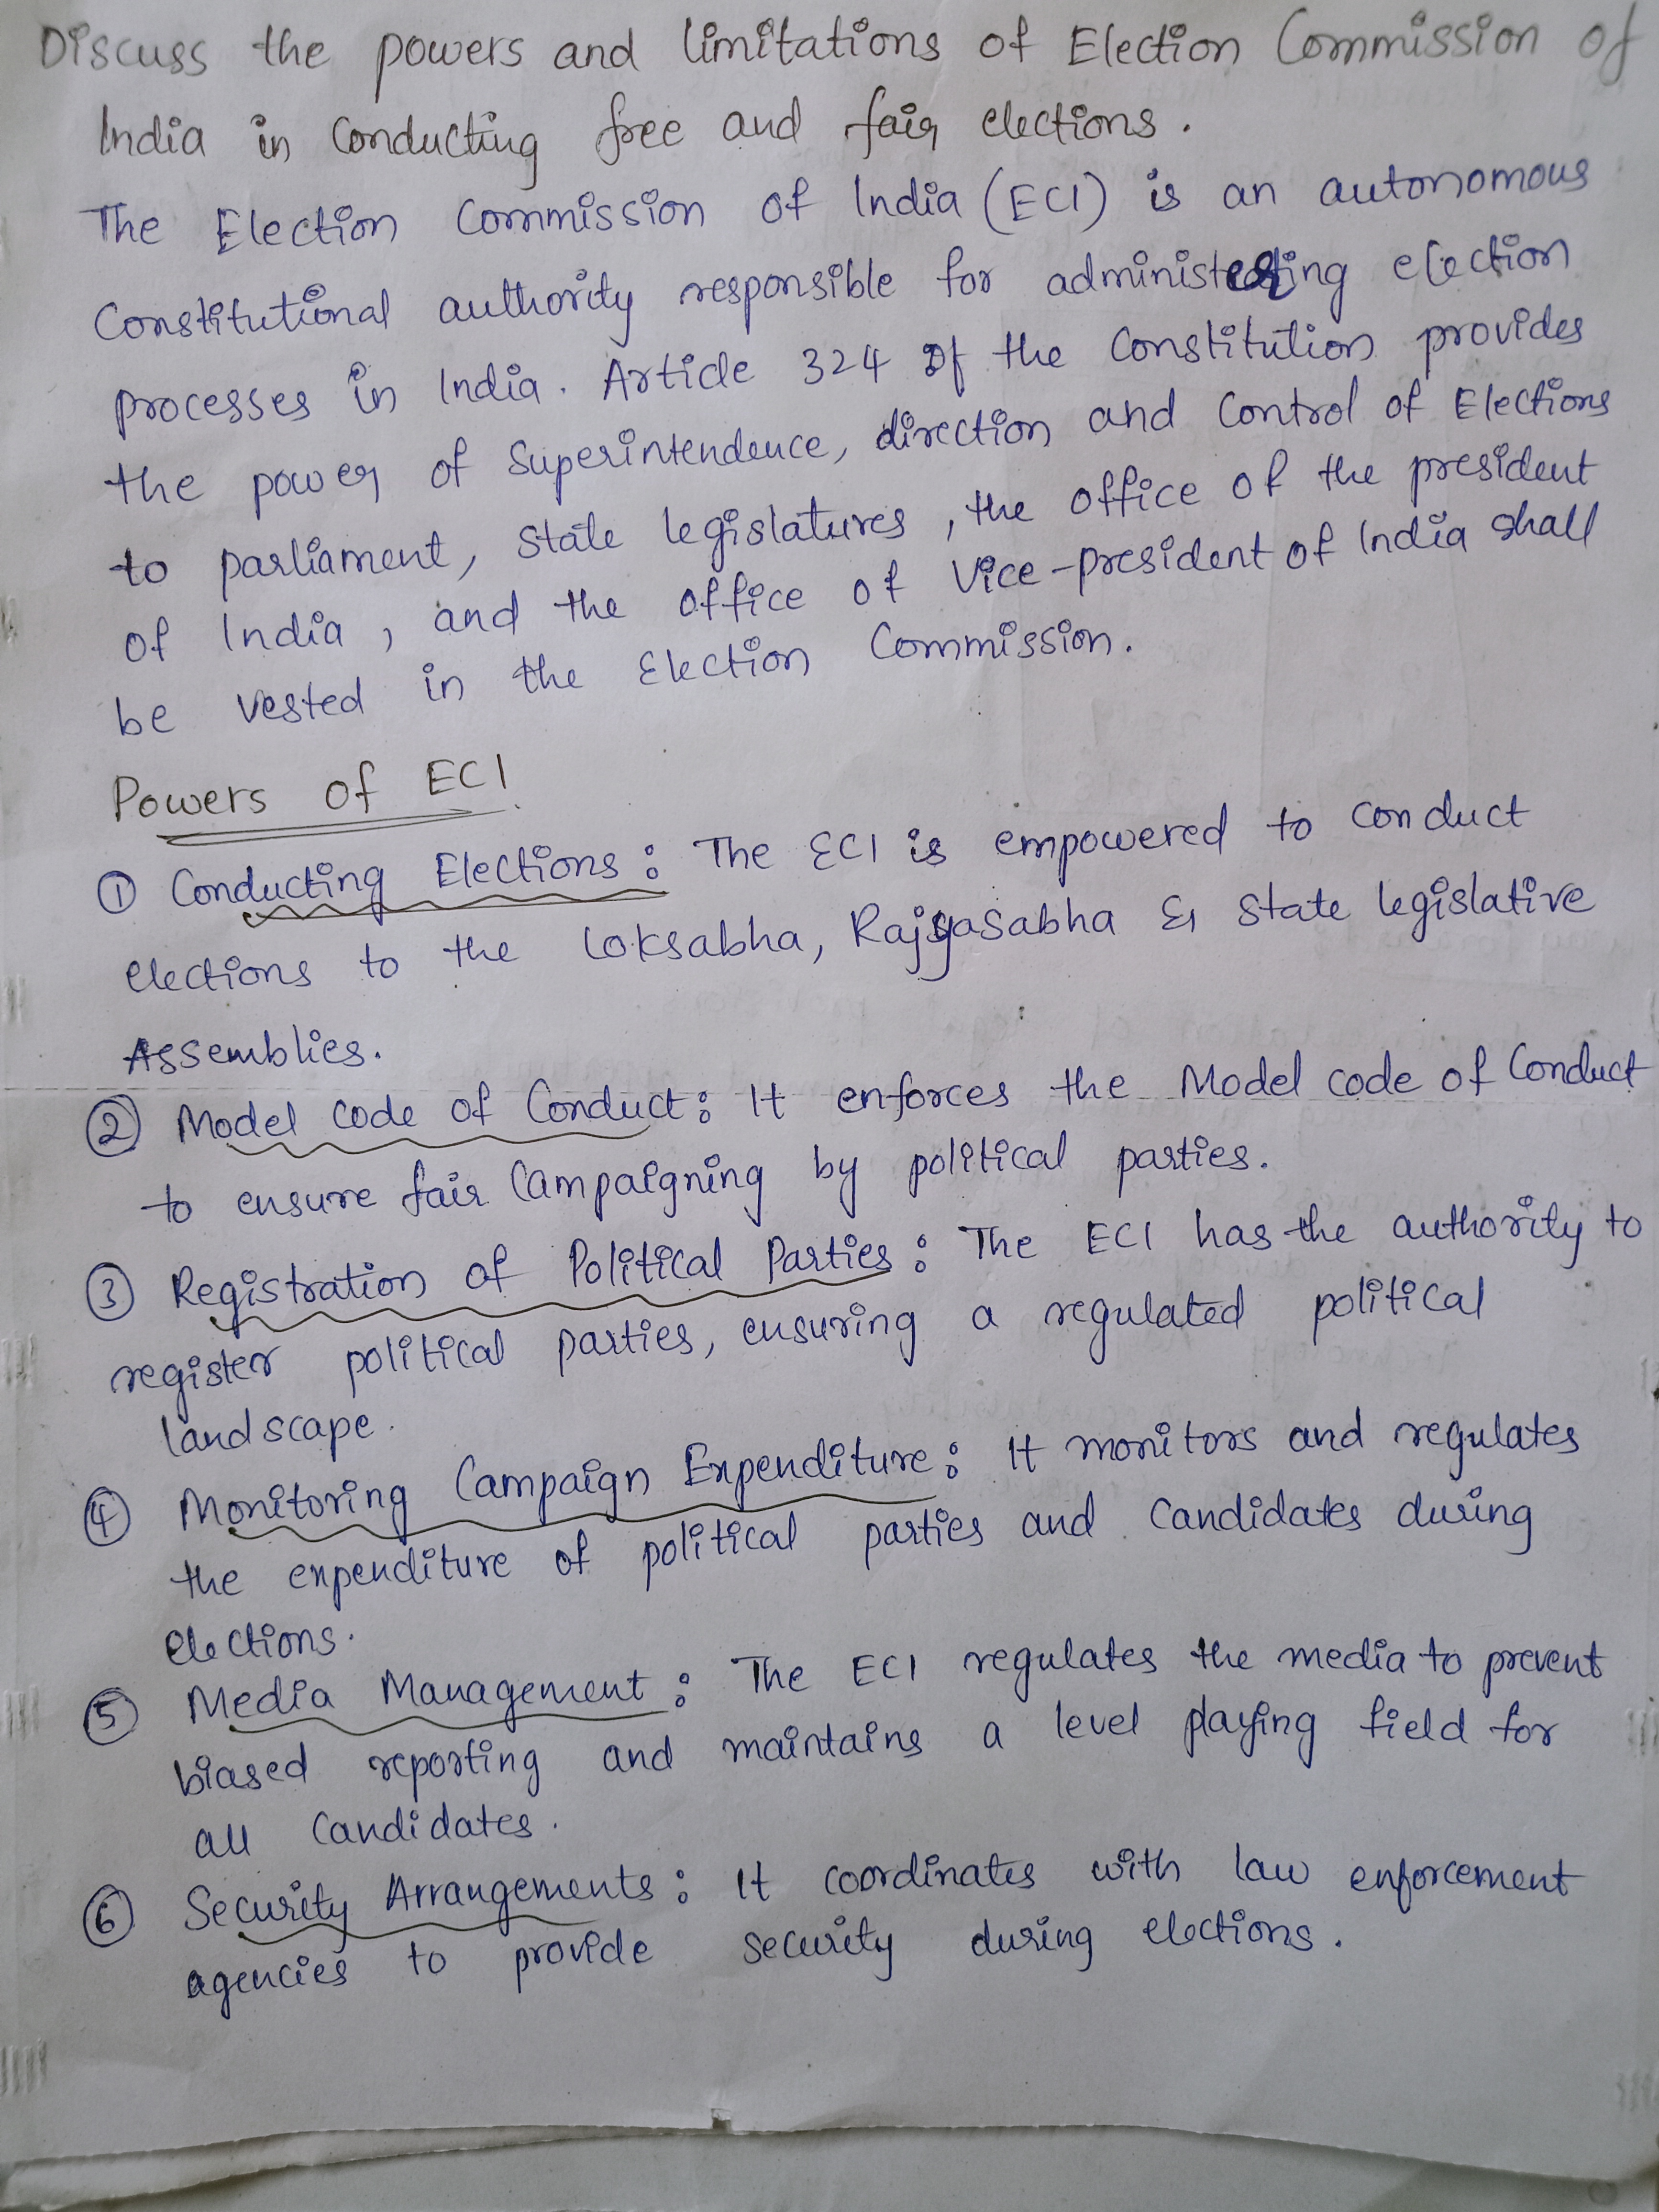 Discuss the powers and limitations of Election Commission of
India in Conducting free and fair elections.
The Election Commission of India (ECI) is an autonomous
Constitutional authority responsible for administering election
processes in India. Article 324 of the Constitution provides
the power of Superintendence, direction and Control of Elections
to parliament, State legislatures, the office of the president
of India, and the office of Vice-president of India shall
be vested in the Election Commission.
Powers of ECI
① Conducting Elections: The ECI is empowered to conduct
elections to the Loksabha, Rajyasabha & State legislative
Assemblies.
② Model code of Conduct: It enforces the Model code of Conduct
to ensure fair Campaigning by political parties.
③ Registration of Political Parties: The ECI has the authority to
register political parties, ensuring a regulated political
landscape.
④ Monitoring Campaign Expenditure: It monitors and regulates
the expenditure of political parties and Candidates during
elections.
⑤ Media Management: The ECI regulates the media to prevent
biased reporting and maintains a level playing field for
all Candidates.
⑥ Security Arrangements: It coordinates with law enforcement
agencies to provide security during elections.